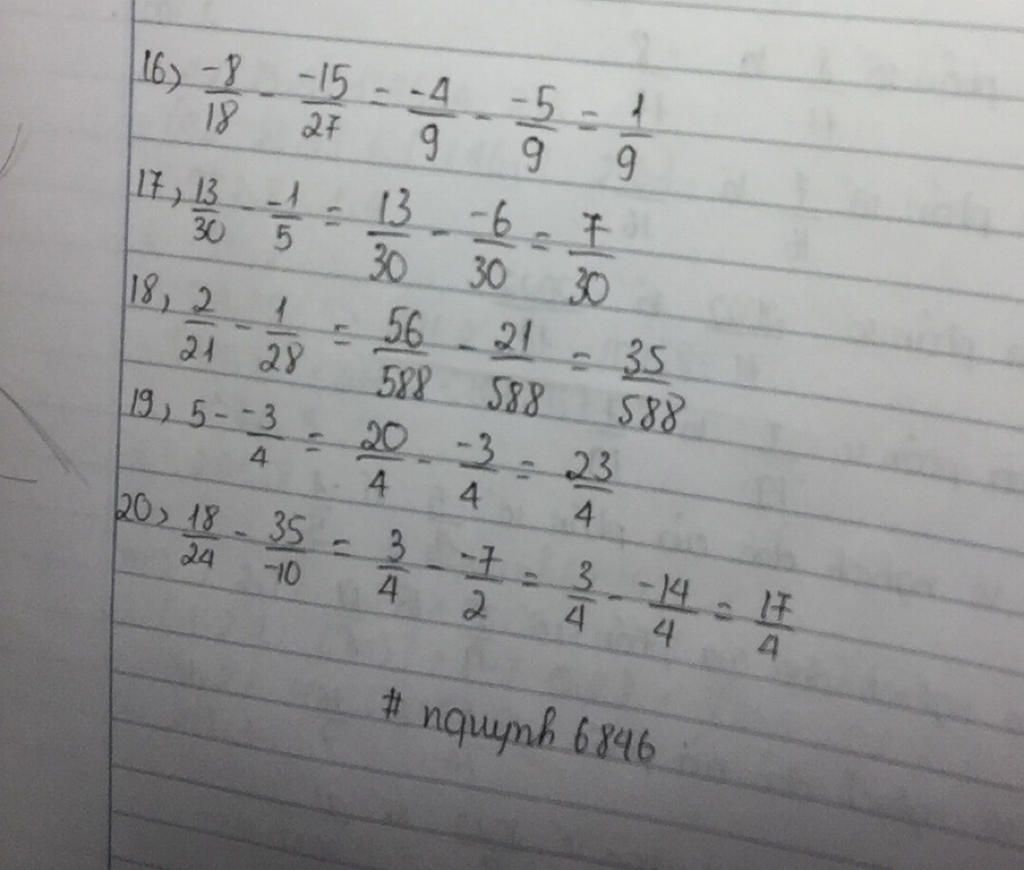 16, -8/18 - -15/27 = -4/9 - -5/9 = 1/9
17, 13/30 - -1/5 = 13/30 - -6/30 = 7/30
18, 2/21 - 1/28 = 56/588 - 21/588 = 35/588
19, 5 - -3/4 = 20/4 - -3/4 = 23/4
20, 18/24 - 35/-10 = 3/4 - -7/2 = 3/4 - -14/4 = 17/4
# nquynh 6846